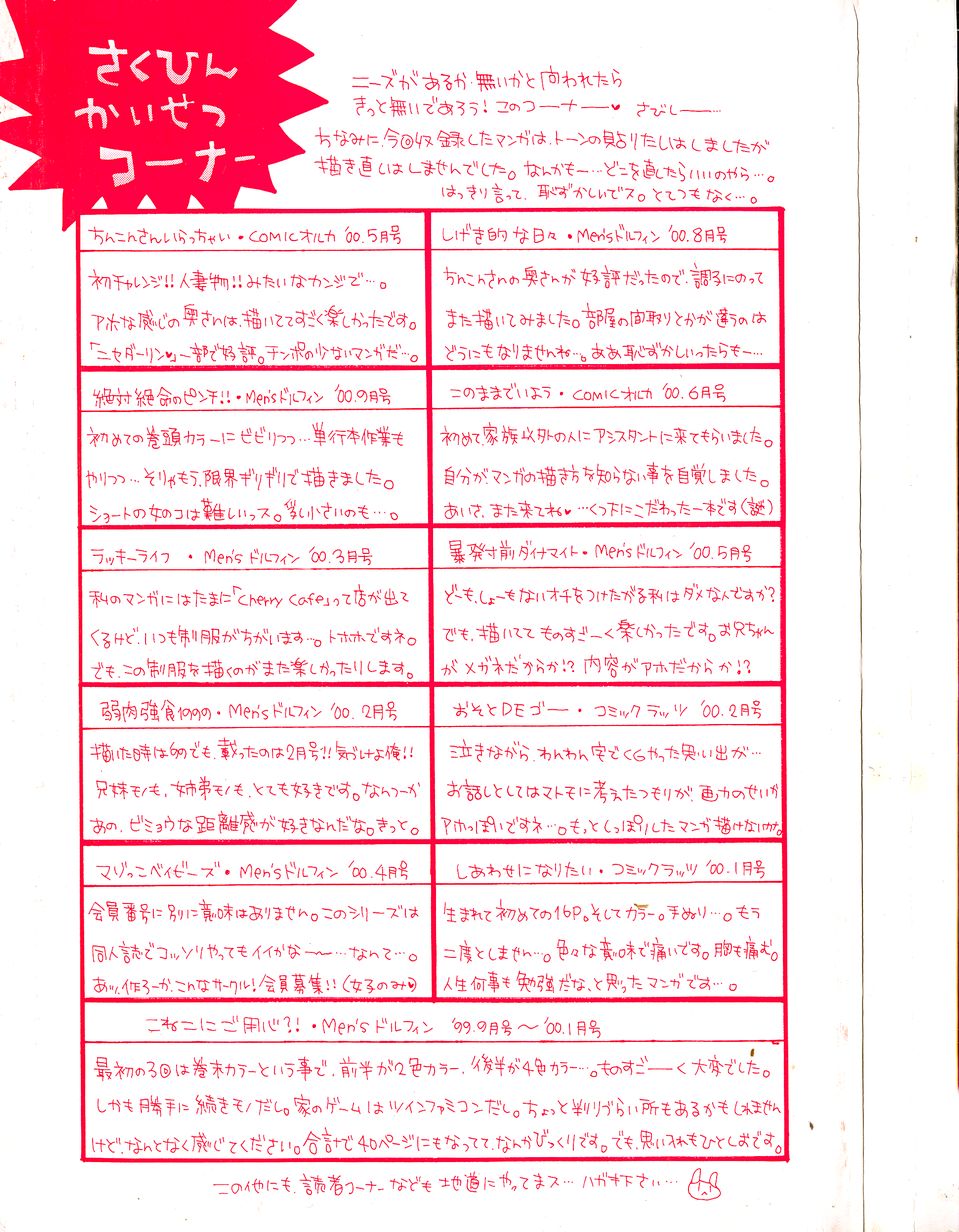 さくひん
かいせつ
コーナー
ニーズがあるか・無いかと問われたら
きっと無いであろう!このコーナー──♥ さびし──…
ちなみに、今回収録したマンガは、トーンの貼りたしはしましたが
描き直しはしませんでした。なんかも一…どこを直したらいいのやら…。
はっきり言って、恥ずかしいでス。とてつもなく…。
ちんこんさんいらっちゃい・COMICオルカ '00.5月号
初チャレンジ!!人妻物!!みたいなカンジで…。
アホな感じの奥さんは、描いててすごく楽しかったです。
「ニセダーリン♥」一部で好評。チンポの少ないマンガだ…。
しげき的な日々・Men'sドルフィン '00.8月号
ちんこんさんの奥さんが好評だったので、調子にのって
また描いてみました。部屋の間取りとかが違うのは
どうにもなりませんね…。ああ恥ずかしいったらもー…
絶対絶命のピンチ!!・Men'sドルフィン '00.9月号
初めての巻頭カラーにビビりつつ…単行本作業も
やりつつ…そりゃもう、限界ギリギリで描きました。
ショートの女のコは難しいっス。乳小さいのも…。
このままでいよう・COMICオルカ '00.6月号
初めて、家族以外の人にアシスタントに来てもらいました。
自分がマンガの描き方を知らない事を自覚しました。
あいさ、また来てね♥…くつ下にこだわった一本です(謎)
ラッキーライフ ・Men'sドルフィン '00.3月号
私のマンガにはたまに「cherry cafe」って店が出て
くるけど、いつも制服がちがいます…。トホホですネ。
でも、この制服を描くのがまた楽しかったりします。
暴発寸前ダイナマイト・Men'sドルフィン '00.5月号
どーも、しょーもないオチをつけたがる私はダメなんですか?
でも、描いてて ものすご一く楽しかったです。お兄ちゃん
がメガネだからか!?内容がアホだからか!?
弱肉強食1999・Men'sドルフィン '00.2月号
描いた時は'99でも、載ったのは2月号!!気づけよ俺!!
兄妹モノも、姉弟モノも、とても好きです。なんつーか
あの、ビミョウな距離感が好きなんだな。きっと。
おそとDEゴー・コミックラッツ '00.2月号
泣きながら、わんわん宅でCGやった思い出が…
お話しとしてはマトモに考えたつもりが、画力のせいか
アホっぽいですネ…。もっとしっぽりしたマンガ描けないかな。
マゾっこベイビーズ・Men'sドルフィン '00.4月号
会員番号に別に意味はありません。このシリーズは
同人誌でコッソリやってもイイかな〜〜…なんて…。
あッ、作ろーか、こんなサークル!会員募集!!(女子のみ♥)
しあわせになりたい・コミックラッツ '00.1月号
生まれて初めての16P。そしてカラー。手ぬり…。もう
二度としません…。色々な意味で痛いです。胸も痛む。
人生何事も勉強だな、と思ったマンガです…。
こねこにご用心?!・Men'sドルフィン '99.9月号〜'00.1月号
最初の3回は巻末カラーという事で、前半が2色カラー、後半が4色カラー…。ものすご──く大変でした。
しかも勝手に続きモノだし。家のゲームはツインファミコンだし。ちょっと判りづらい所もあるかもしれません
けど、なんとなく感じてください。合計で40ページにもなってて、なんかびっくりです。でも、思い入れもひとしおです。
この他にも、読者コーナーなども地道にやってまス…ハガキ下さい…